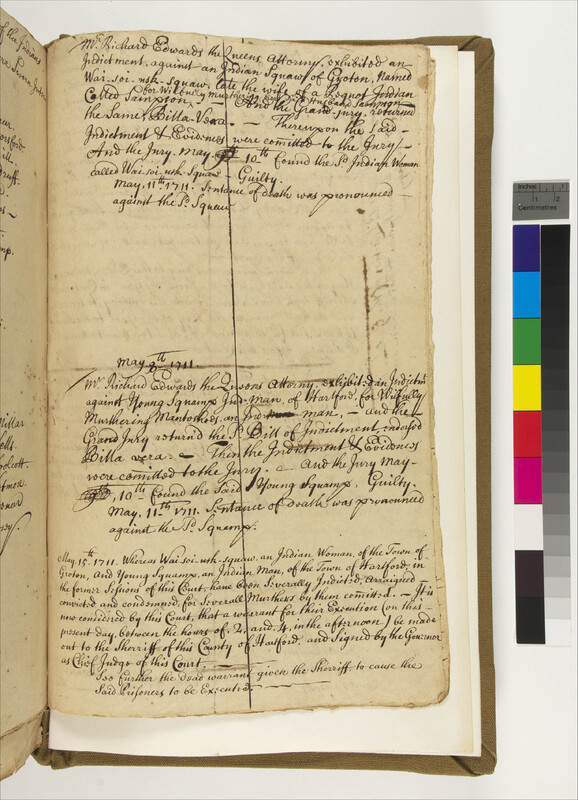 Mr. Richard Edwards the Queens Attorny, exhibited an
Indictment, against an Indian Squaw of Groton, Named
Wai-soi-ush-Squaw, late the wife of a Pequot Indian
Called Sampson, for Wilfully Murthering her sd Husband Sampson
And the Grand-jury returned
the Same, Billa-Vera. — Thereupon the Said
Indictment & Evidences were comitted to the Jury
And the Jury May 10th Found the Sd. Indian Woman
called Wai-soi-ush-Squaw Guilty.
May, 11th 1711. Sentance of death was pronounced
against the Sd. Squaw
May 8th 1711
Mr. Richard Edwards the Queens Attorny, exhibited an Indictmt
against Young Squamp Indn. man, of Hartford, for Wilfully
Murthering Mantowees, an Ind man, — and the
Grand Jury returnd the Sd. Bill of Indictment, indorsed
Billa vera: — Then the Indictment & Evidences
were comitted to the Jury. And the Jury May
10th Found the Said Young Squamp, Guilty.
May, 11th 1711. Sentance of death was pronounced
against the Sd. Squamp.
May, 15th 1711. Whereas Wai-soi-ush-squaw, an Indian Woman, of the Town of
Groton, And Young Squamp, an Indian Man, of the Town of Hartford, in
the former Sessions of this Court, have been Severally Indicted, Arraigned
convicted and condemned, for Severall Murthers by them comitted. — It is
now considered by this Court, that a warrant for their Execution (on this
present day, between the hours of, 2, and, 4, in the afternoon) be made
out to the Sherriff of this County of Hartford, and Signed by the Governor
as Chief Judge of this Court.
See further the dead warrant given the Sherriff, to cause the
Said Prisoners to be Executed.
Inches
1
2
Centimetres